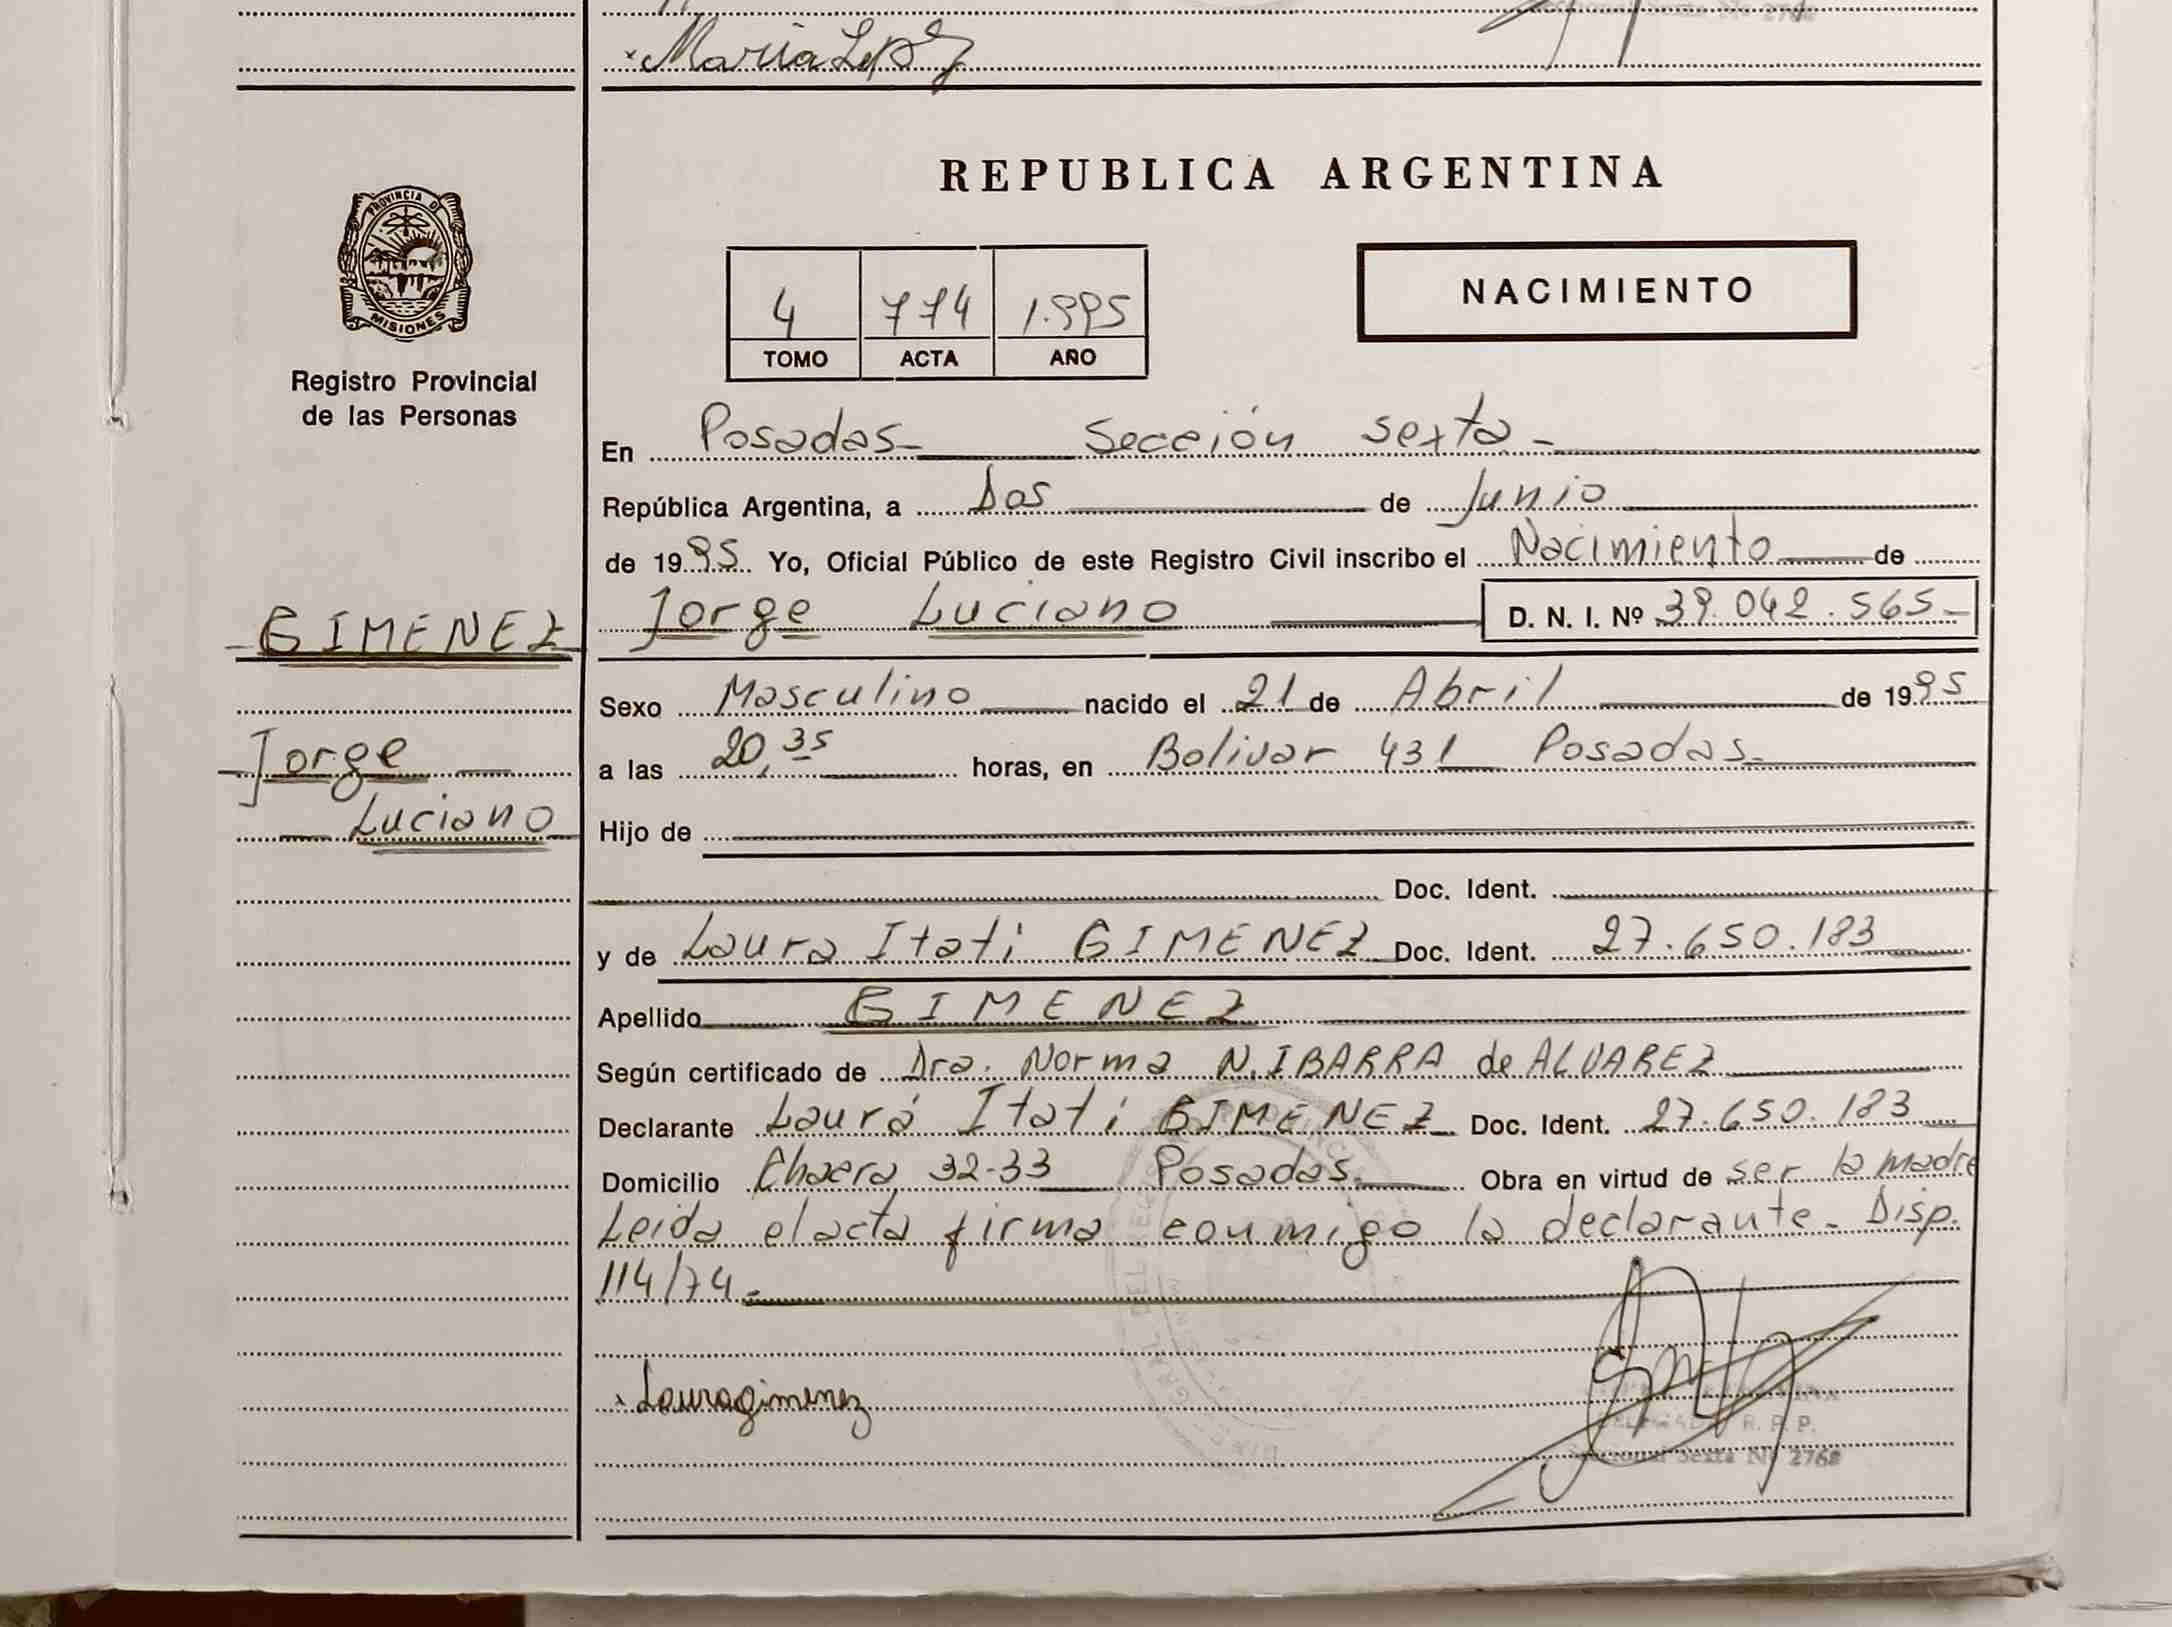 María López
REPUBLICA ARGENTINA
PROVINCIA DE
MISIONES
Registro Provincial
de las Personas
4 774 1.995
TOMO ACTA AÑO
NACIMIENTO
En Posadas- Sección sexta-
República Argentina, a Dos de Junio
de 1995 Yo, Oficial Público de este Registro Civil inscribo el Nacimiento de
GIMENEZ Jorge Luciano D. N. I. Nº 39.042.565-
Sexo Masculino nacido el 21 de Abril de 1995
Jorge a las 20,35 horas, en Bolivar 431 Posadas-
Luciano Hijo de
Doc. Ident.
y de Laura Itatí GIMENEZ Doc. Ident. 27.650.183
Apellido GIMENEZ
Según certificado de Dra. Norma N. IBARRA de ALVAREZ
Declarante Laura Itatí GIMENEZ Doc. Ident. 27.650.183
Domicilio Chacra 32-33 Posadas- Obra en virtud de ser la madre
Leida el acta firma conmigo la declarante- Disp.
114/74-
Laura gimenez
R. P. P.
Seccional Sexta Nº 2768